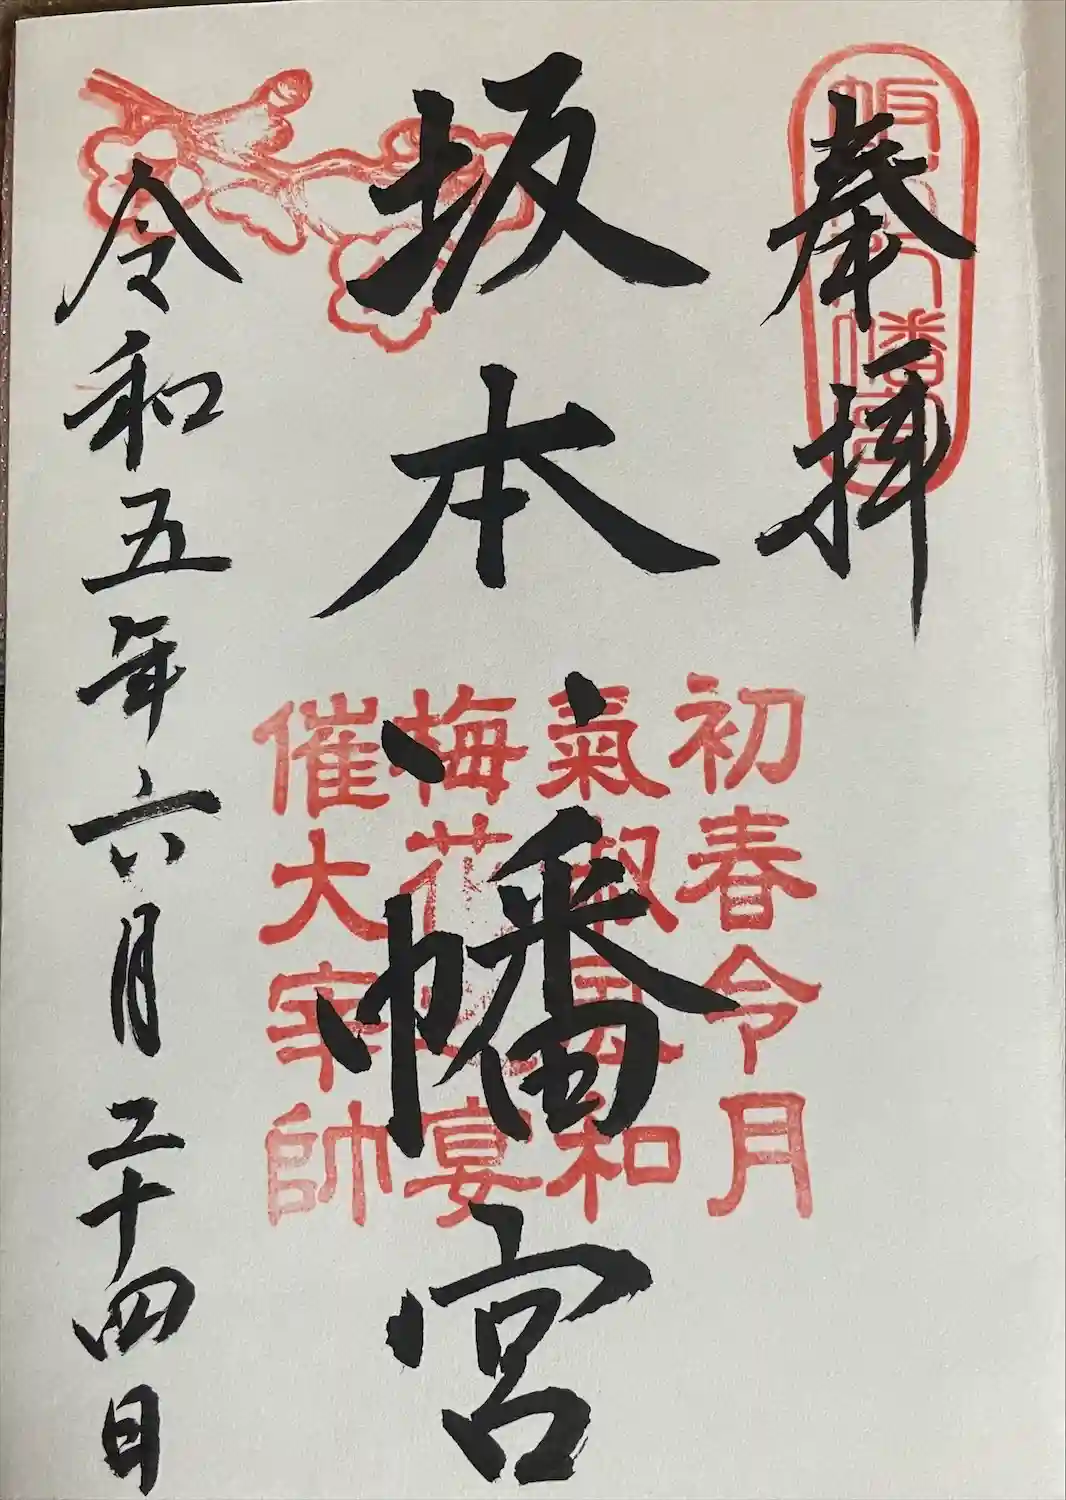 奉拝
坂本八幡宮
坂本八幡宮
令和五年六月二十四日
初春令月
氣淑風和
梅花之宴
催大宰帥